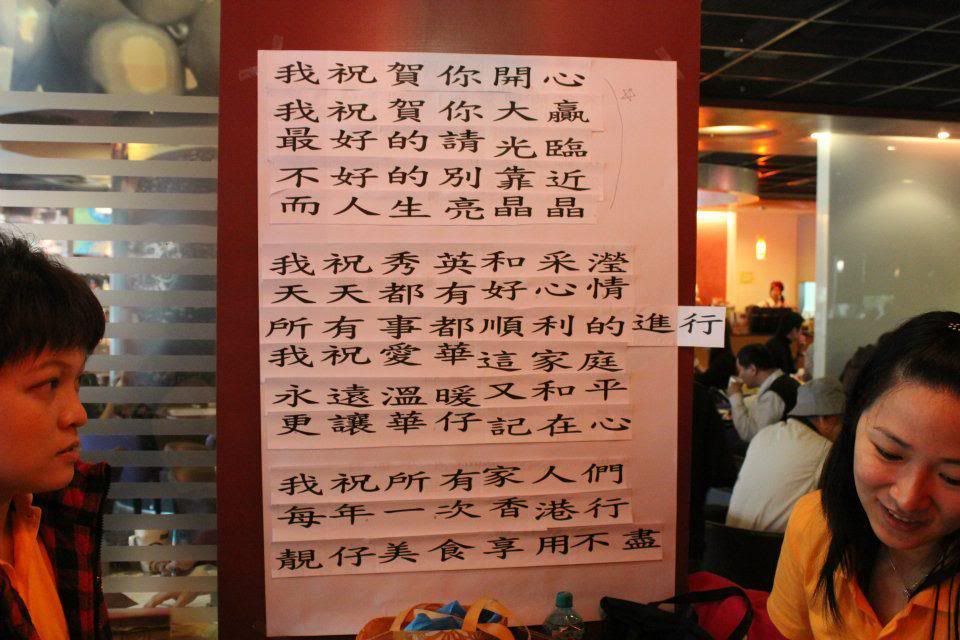 我祝賀你開心
我祝賀你大贏
最好的請光臨
不好的別靠近
而人生亮晶晶
我祝秀英和采瀅
天天都有好心情
所有事都順利的進行
我祝愛華這家庭
永遠溫暖又和平
更讓華仔記在心
我祝所有家人們
每年一次香港行
靚仔美食享用不盡